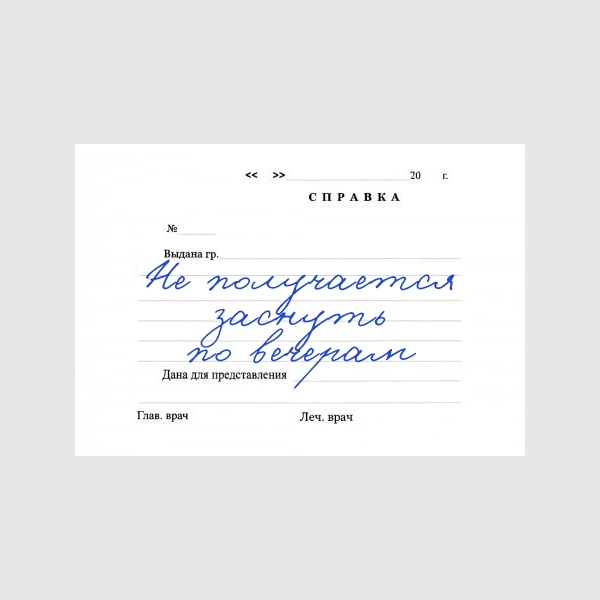 << >> 20 г.
СПРАВКА
№
Выдана гр.
Не получается
заснуть
по вечерам
Дана для представления
Глав. врач Леч. врач